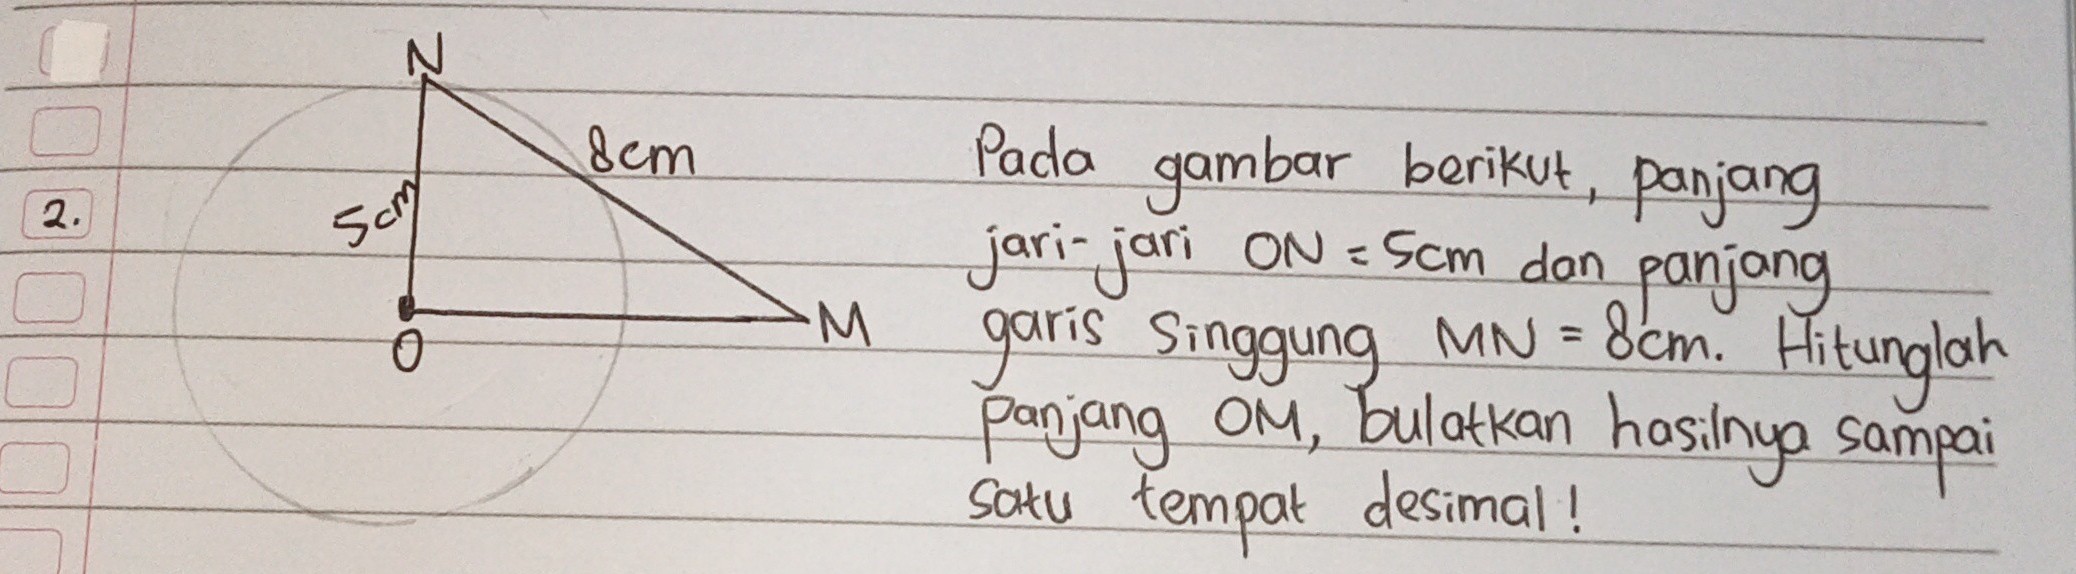 N
8cm
5cm
O
M
2.
Pada gambar berikut, panjang
jari-jari ON = 5cm dan panjang
garis singgung MN = 8cm. Hitunglah
panjang OM, bulatkan hasilnya sampai
satu tempat desimal!